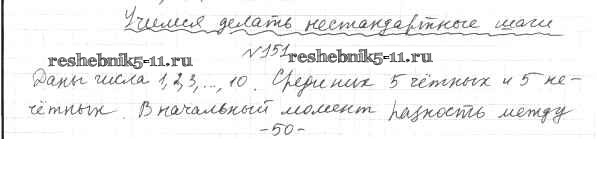 Учимся делать нестандартные шаги
№151
reshebnik5-11.ru
reshebnik5-11.ru
Даны числа 1, 2, 3, ..., 10. Среди них 5 чётных и 5 не-
чётных. В начальный момент разность между
-50-